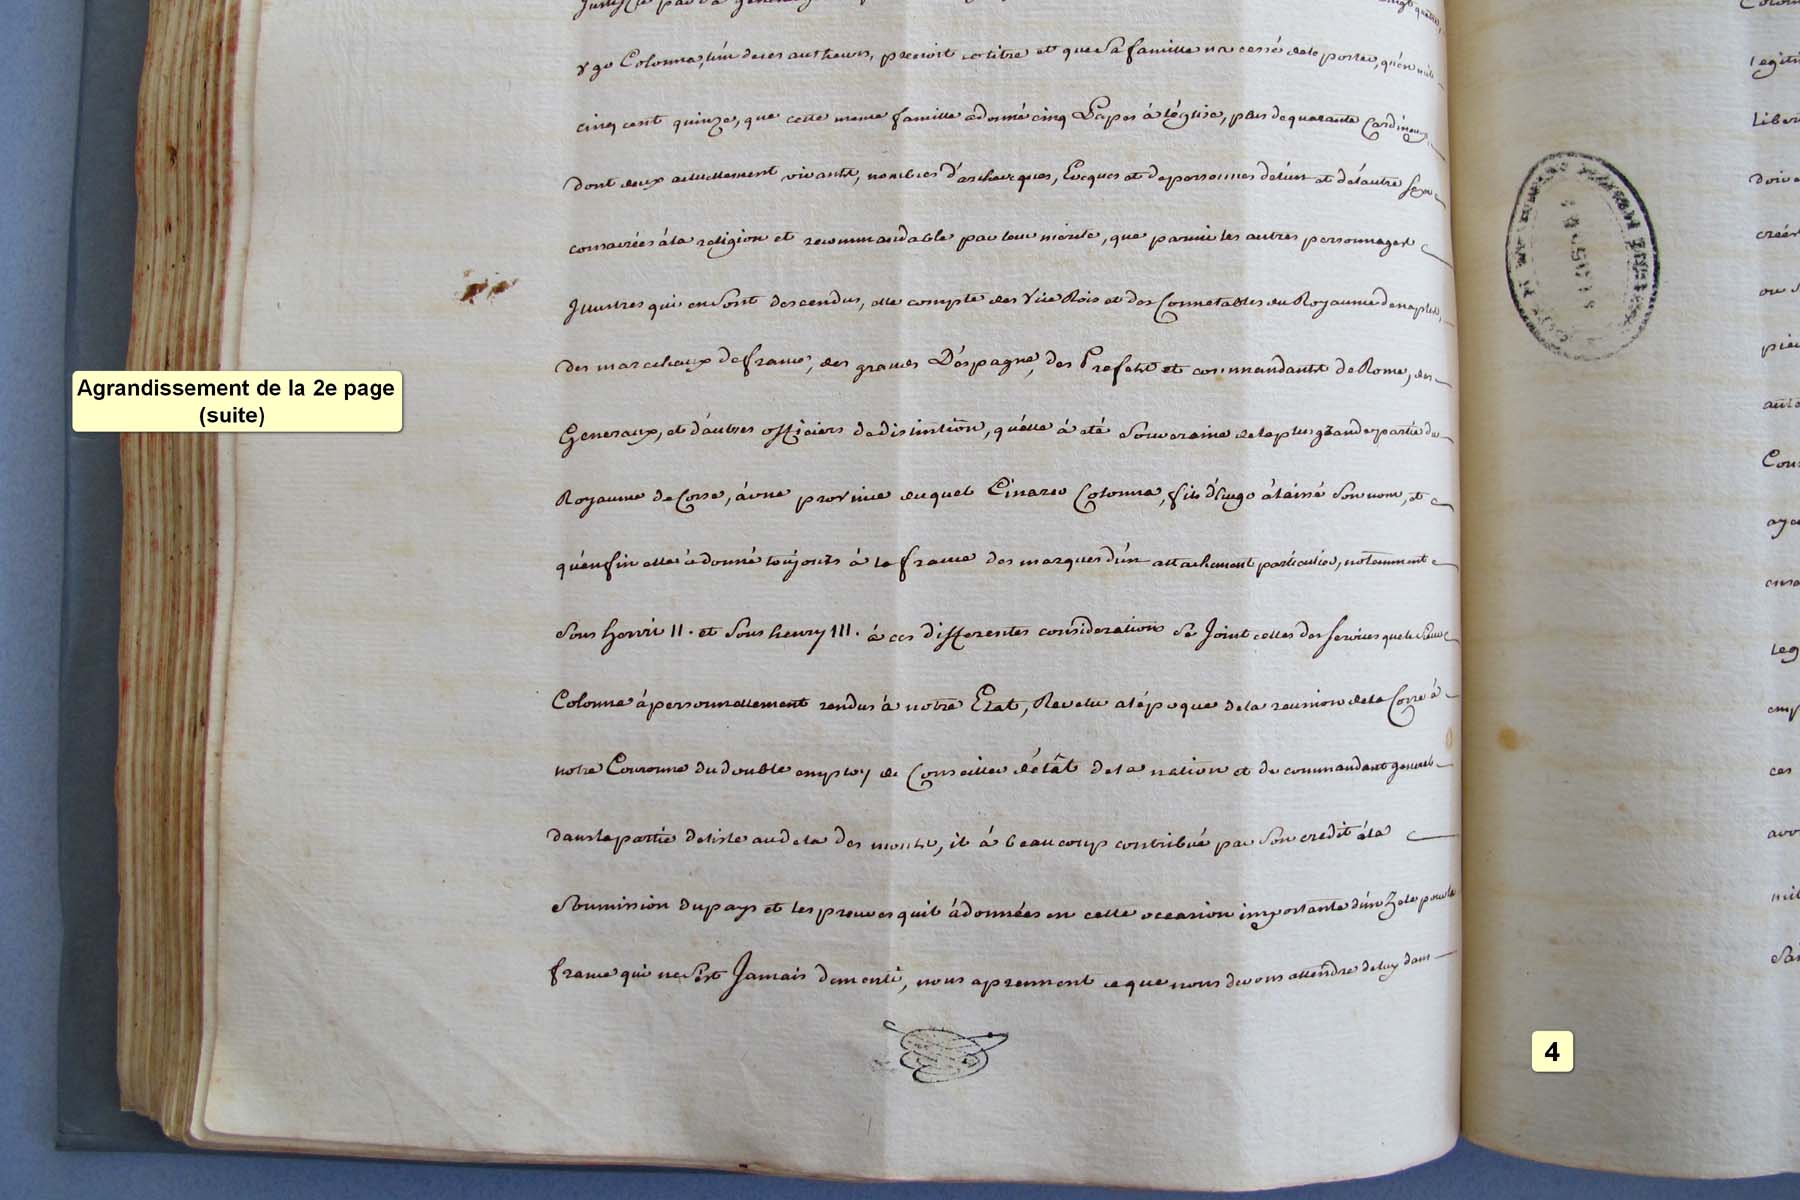 ygo Colonna, l'un de ses autheurs, prenoit ce titre et que Sa famille n'a cessé de le porter, qu'en mil
cinq cent quinze, que cette meme famille a donné cinq Papes à l'église, plus de quarante Cardinaux,
dont deux actuellement vivants, nombres d'archevêques, Evêques et de personnes de l'un et de l'autre Sexe
consacrées à la religion et recommandable par leur mérite, que parmi les autres personnages
Illustres qui en Sont descendus, elle compte des Vice Rois et des Connetables du Royaume de naples,
des marechaux de france, des grands D'espagne, des Prefets et commandants de Rome, des
Generaux, et d'autres officiers de distinction, qu'elle à eté Souveraine de la plus grande partie du
Royaume de Corse, à une province duquel Cinarco Colonna, fils d'hugo à laissé Son nom, et
qu'enfin elle à donné toujours à la france des marques d'un attachement particulier, notamment
Sous henri II. et Sous henry III. à ces differentes considerations Se Joint celles des Services que le Sieur
Colonna à personnellement rendus à notre Etat, Revetu a l'époque de la reunion de la Corse à
notre Couronne du double employ de Conseiller d'état de la nation et de commandant general
dans la partie de l'isle au dela des monts, il à beaucoup contribué par Son credit à la
Soumission du pays et les preuves qu'il à données en cette occasion importante d'un Zele pour la
france qui ne S'est Jamais dementi, nous aprennent ce que nous devons attendre de luy dans
Agrandissement de la 2e page
(suite)
4